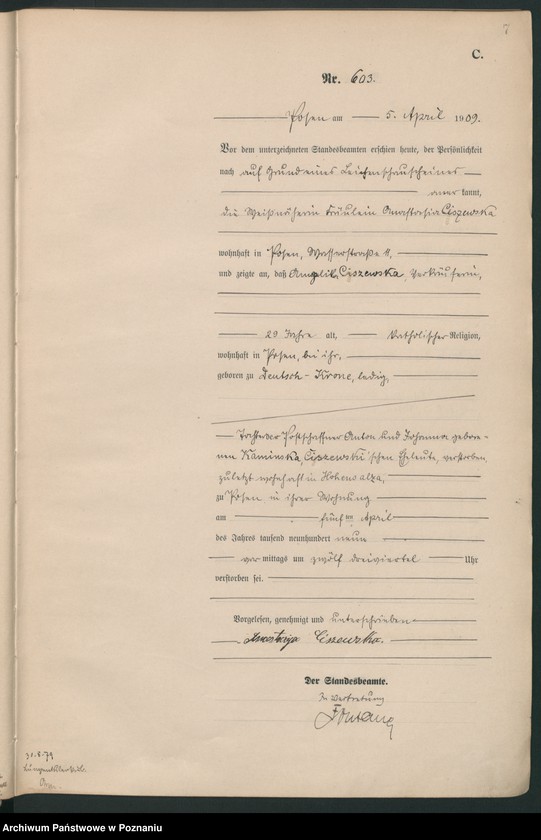 7
C.
Nr. 603.
Posen am 5. April 1909.
Vor dem unterzeichneten Standesbeamten erschien heute, der Persönlichkeit
nach auf Grund eines Leichenschauscheines
anerkannt,
die Weißnäherin Fräulein Anastasia Ciszewska
wohnhaft in Posen, Wasserstraße
und zeigte an, daß Ciszewska, Verkäuferin,
29 Jahre alt, katholischer Religion,
wohnhaft in Posen, bei ihr,
geboren zu Deutsch-Krone, ledig,
Tochter der Postschaffner Anton und Johanna gebore-
nen Kaminska, Ciszewski'schen Eheleute, verstorben,
zuletzt wohnhaft in Hohensalza,
zu Posen in ihrer Wohnung
am fünften April
des Jahres tausend neunhundert neun
vormittags um zwölf dreiviertel Uhr
verstorben sei.
Vorgelesen, genehmigt und unterschrieben
Ciszewska.
Der Standesbeamte.
In Vertretung
31.8.79
Archiwum Państwowe w Poznaniu